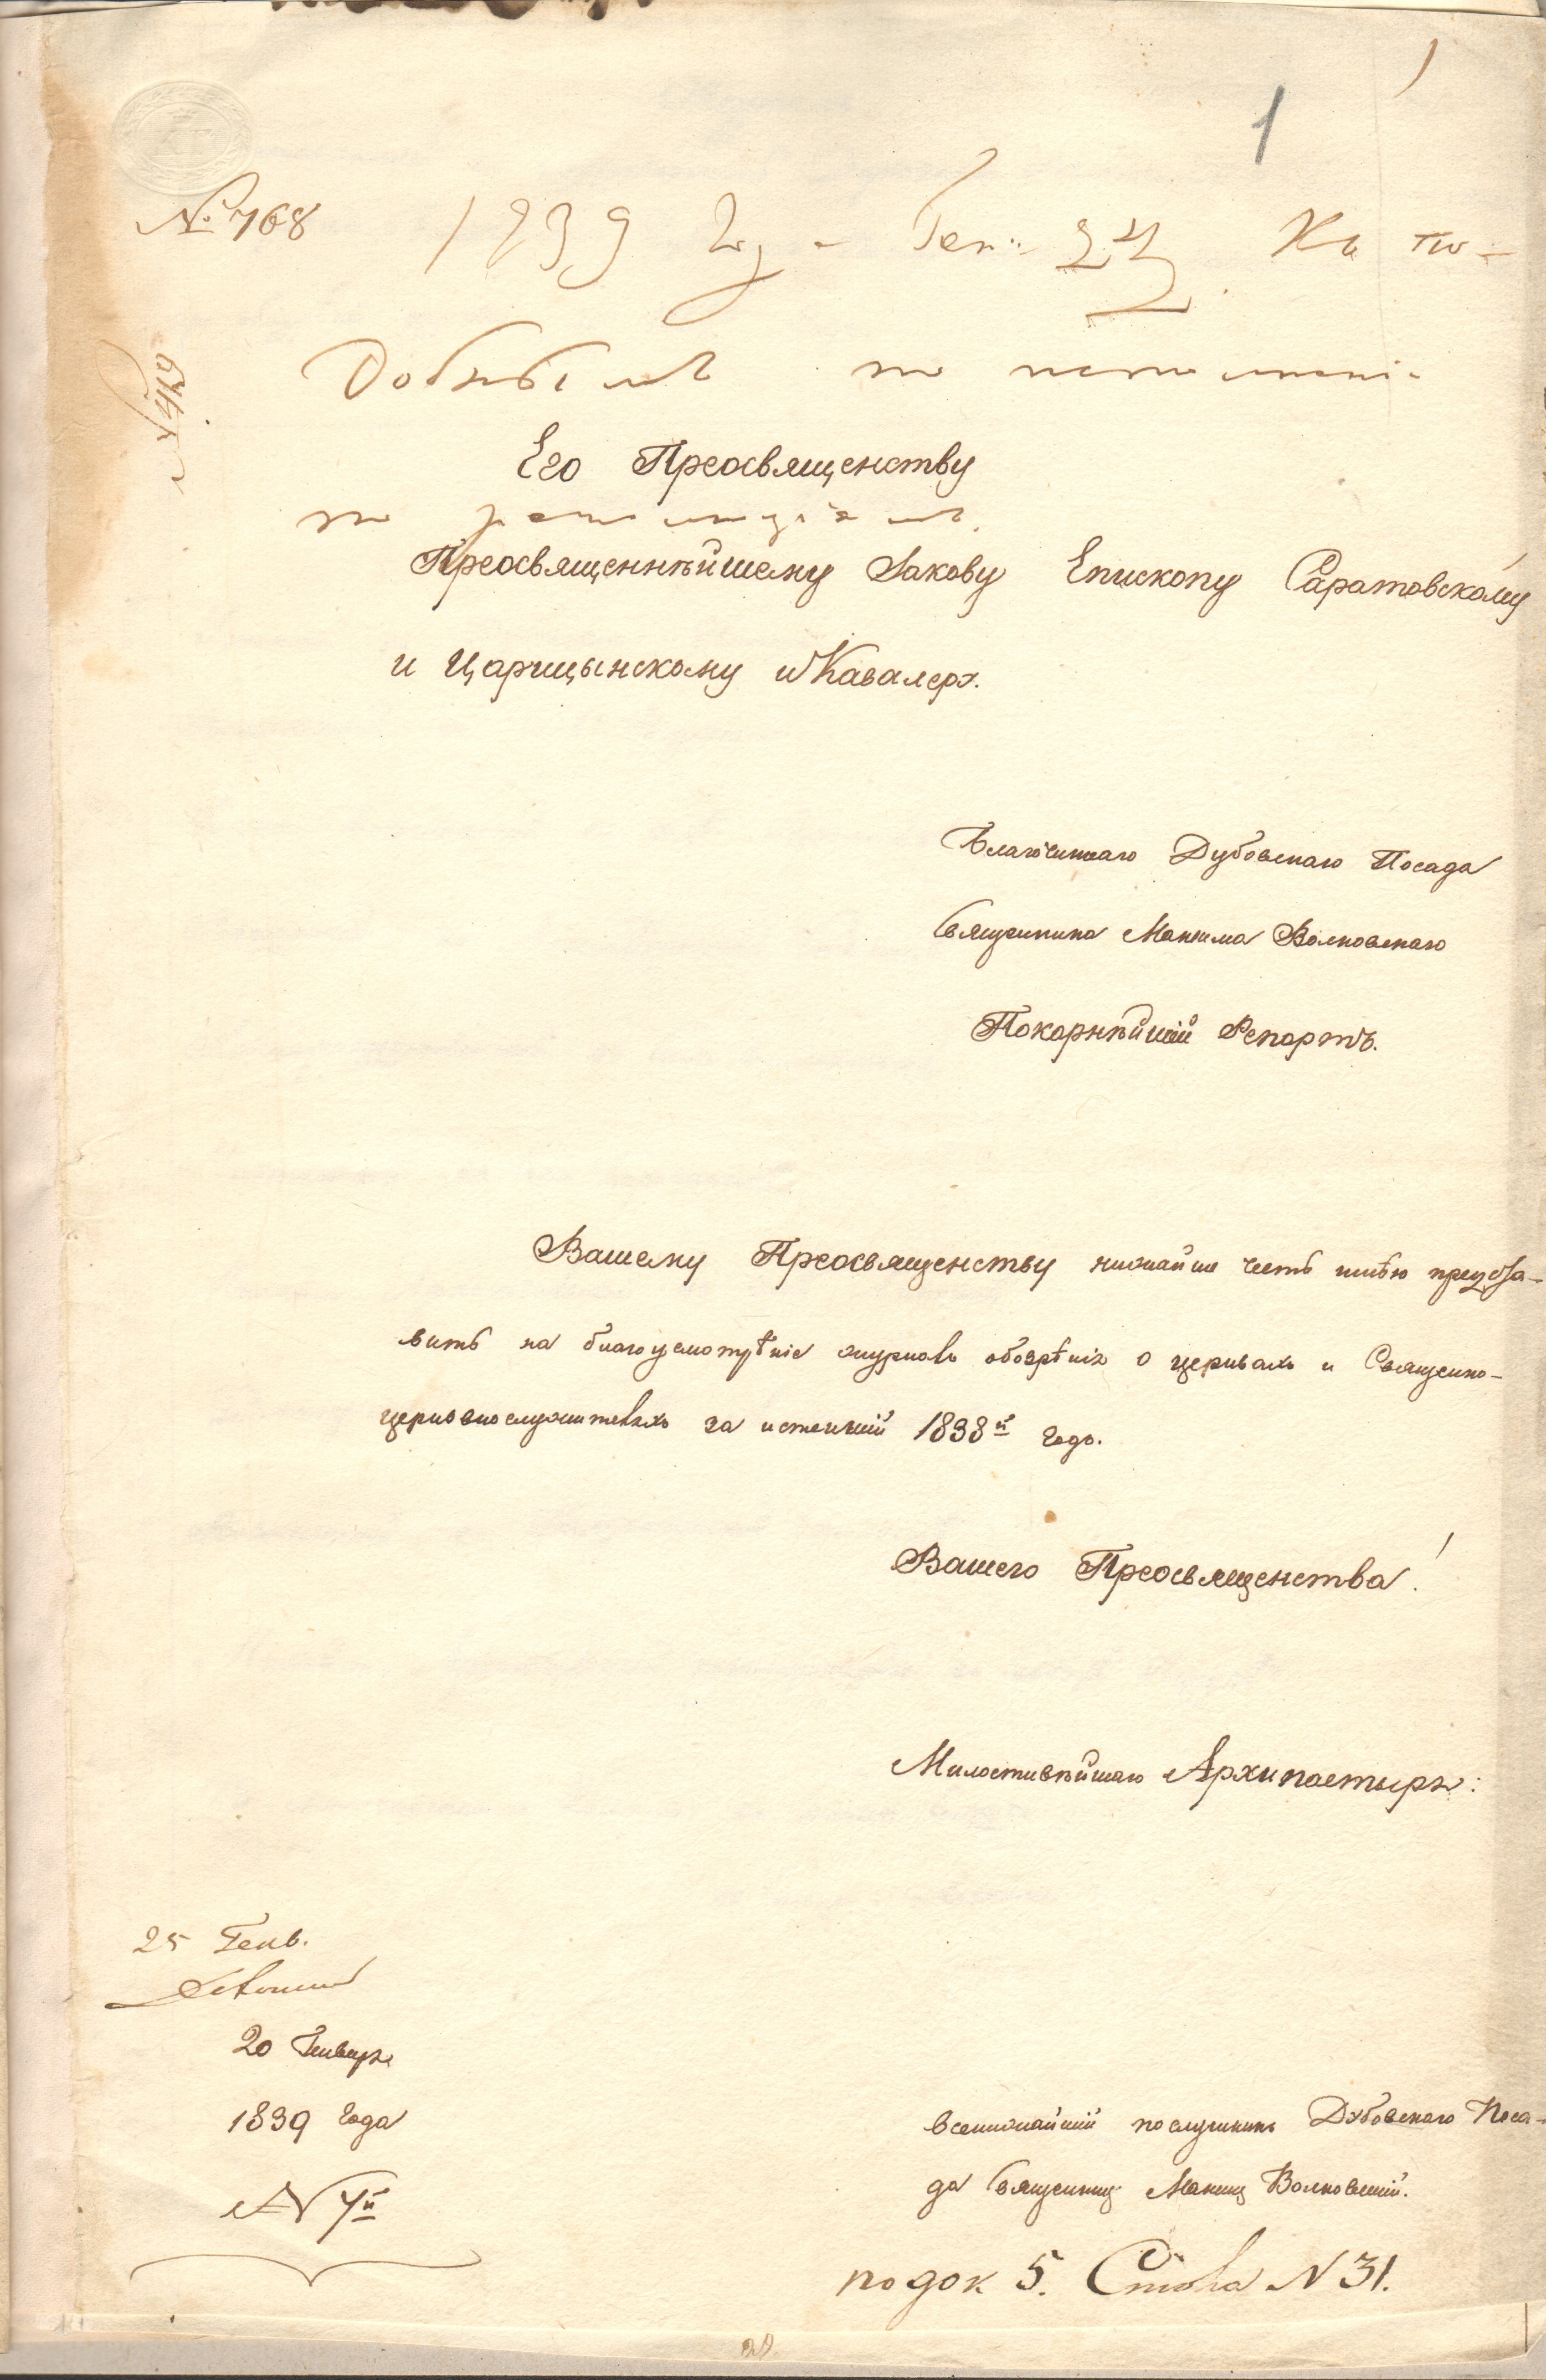 1
№ 768
1839 год. Ген: 24. Къ по-
добнымъ по исполненi-
Его Преосвященству
по резолюцiямъ.
Преосвященнѣйшему Іакову Епископу Саратовскому
и Царицынскому и Кавалеру.
Благочиннаго Дубовскаго Посада
Священника Максима Волковскаго
Покорнѣйшiй Репортъ.
Вашему Преосвященству нижайше честь имѣю предста-
вить на благоусмотрѣнiе журналъ обозрѣнiя о церквахъ и Священно-
церковнослужителяхъ за истекшiй 1838й годъ.
Вашего Преосвященства!
Милостивѣйшаго Архипастыря:
25 Генв.
20 Генваря
1839 года
всенижайшiй послушникъ Дубовскаго Поса-
да Священникъ Максимъ Волковскiй.
по док 5. Стола N 31.